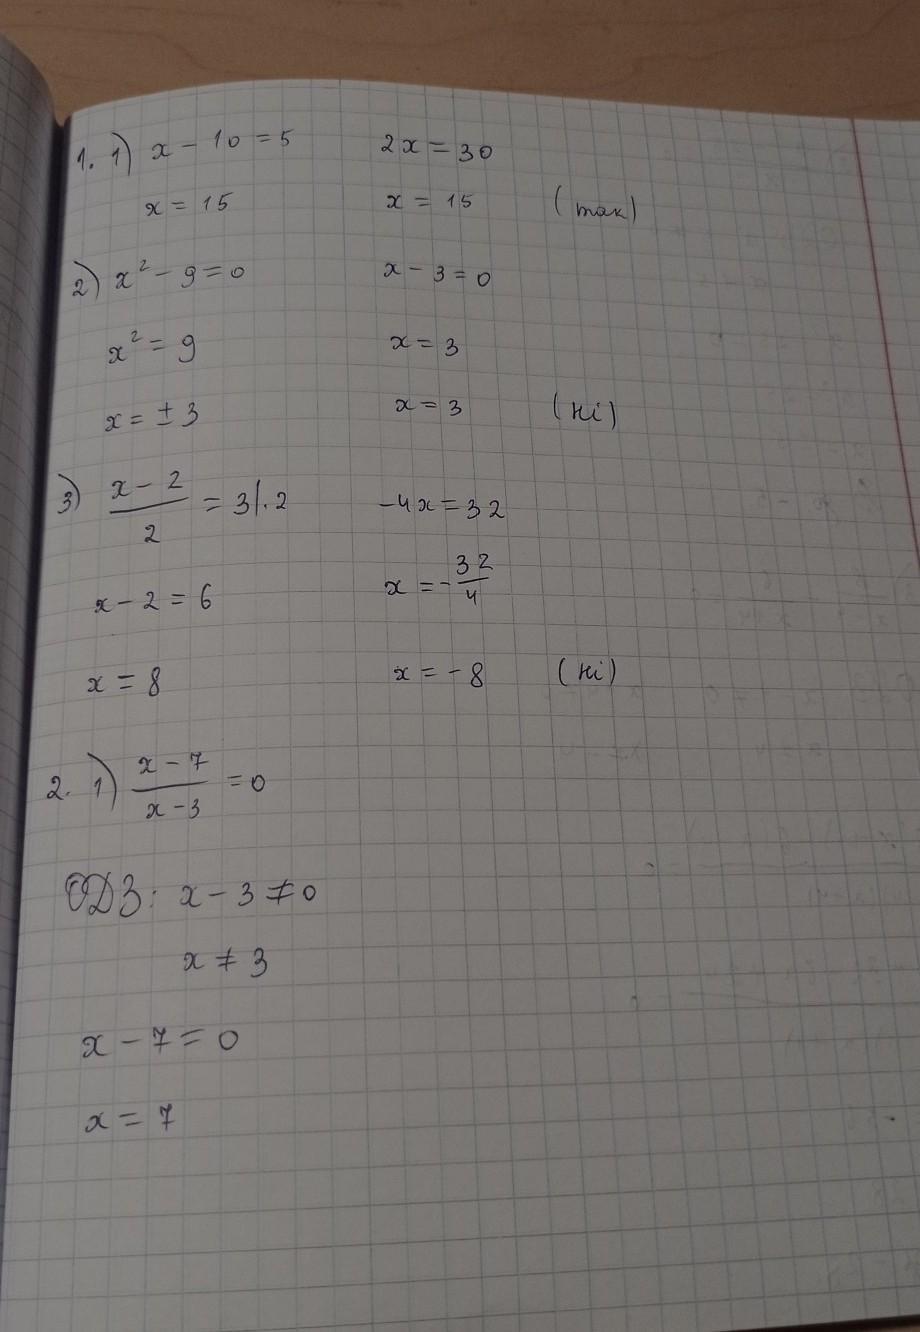 1. 1) x - 10 = 5 2x = 30
x = 15 x = 15 (так)
2) x² - 9 = 0 x - 3 = 0
x² = 9 x = 3
x = ± 3 x = 3 (ні)
3) (x - 2)/2 = 3 |·2 -4x = 32
x - 2 = 6 x = -32/4
x = 8 x = -8 (ні)
2. 1) (x - 7)/(x - 3) = 0
ОДЗ: x - 3 ≠ 0
x ≠ 3
x - 7 = 0
x = 7